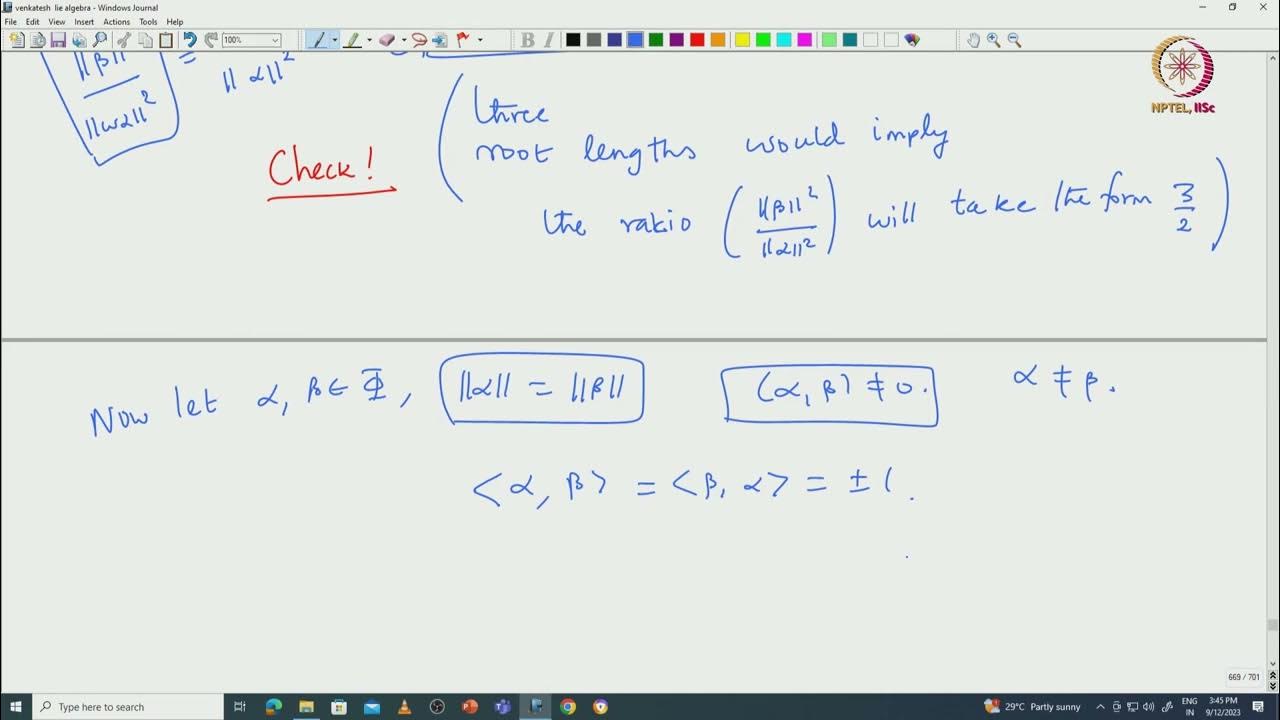 venkatesh lie algebra - Windows Journal
File Edit View Insert Actions Tools Help
100%
B I
NPTEL, IISc
||β||
||wα||²
=
||α||²
Check!
three
root lengths would imply
the ratio (||β||²/||α||²) will take the form 3/2
Now let α, β ∈ Φ, ||α|| = ||β|| (α, β) ≠ 0. α ≠ β.
<α, β> = <β, α> = ±1.
669 / 701
Type here to search
29°C Partly sunny
ENG
IN
3:45 PM
9/12/2023